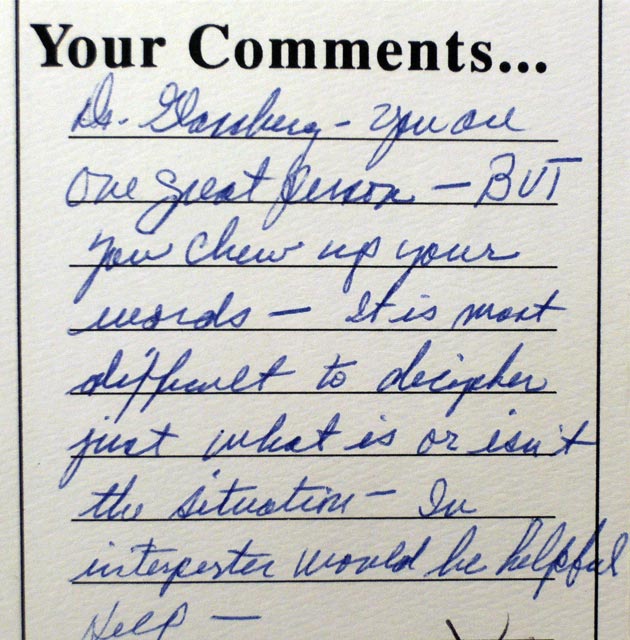 Your Comments...
Dr. Glassberg - You are
one great person - BUT
you chew up your
words - It is most
difficult to decipher
just what is or isn't
the situation - In
interperter would be helpful
Help -